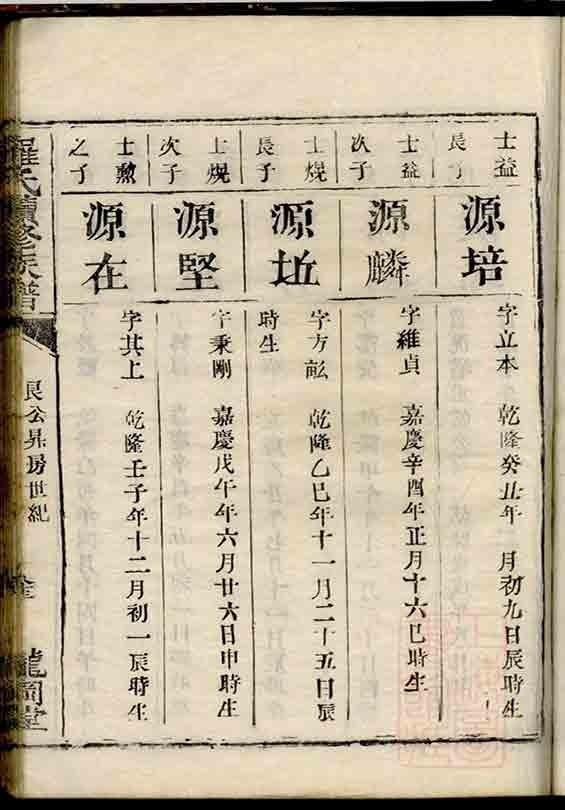 士益
長子
源培
字立本 乾隆癸丑年 月初九日辰時生
士益
次子
源麟
字維貞 嘉慶辛酉年正月十六巳時生
士熀
長子
源近
字方訟 乾隆乙巳年十一月二十五日辰
時生
士熀
次子
源堅
字秉剛 嘉慶戊午年六月廿六日申時生
士勲
之子
源在
字其上 乾隆壬子年十二月初一辰時生
羅氏續修族譜
良公昇房世紀
龍岡堂